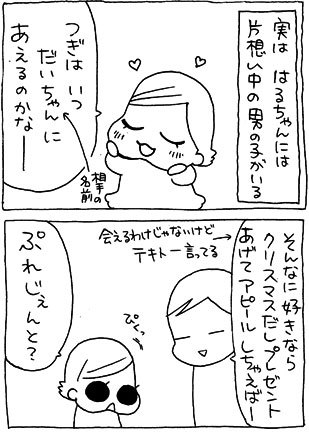 実は はるちゃんには
片想い中の男の子がいる
つぎは いつ
だいちゃんに
あえるのかなー
相手の
名前
そんなに好きなら
クリスマスだしプレゼント
あげてアピールしちゃえばー
会えるわけじゃないけど
テキトー言ってる
ぴくっ
ぷれじぇんと?